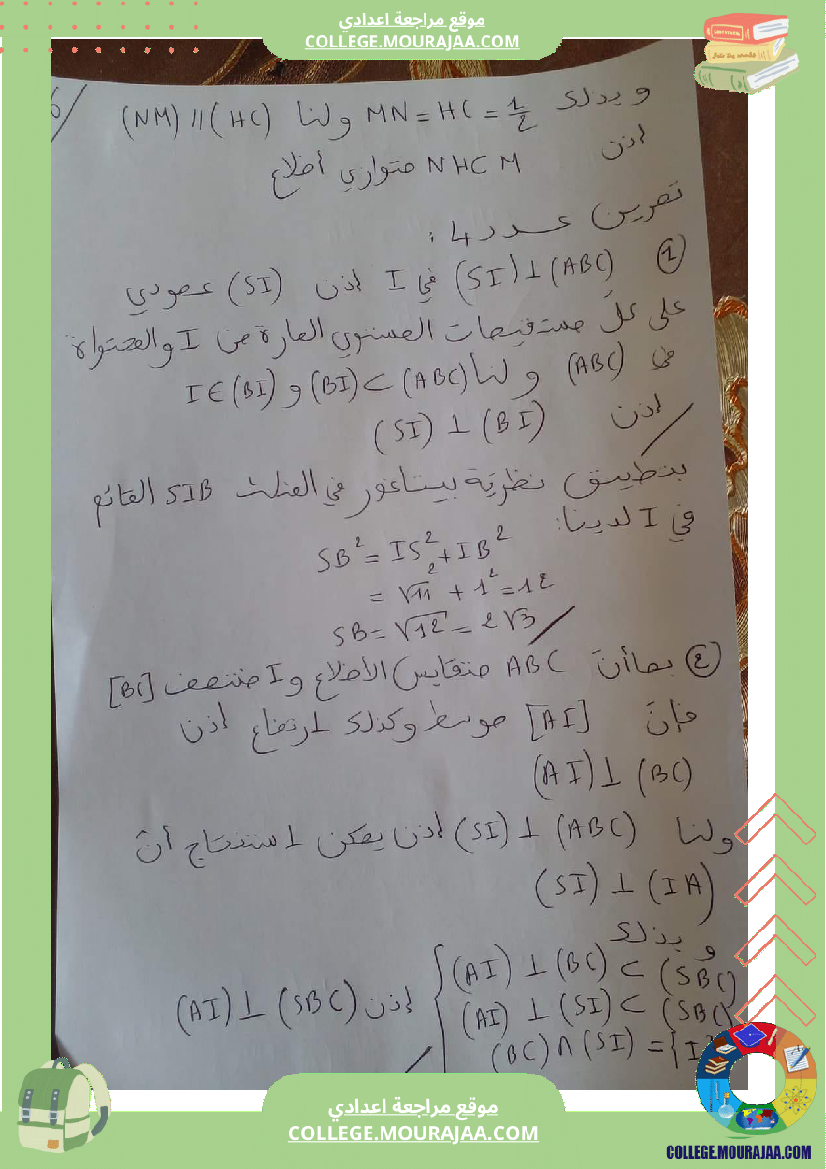 موقع مراجعة اعدادي
COLLEGE.MOURAJAA.COM
وبذلك MN = HC = 1/2 ولنا (NM) // (HC)
اذن NHCM متوازي أضلاع
تمرين عدد 4 :
① (SI) ⊥ (ABC) في I اذن (SI) عمودي
على كلّ مستقيمات المستوي المارة من I والمحتواة
في (ABC) ولنا (BI) ⊂ (ABC) و I ∈ (BI)
اذن (SI) ⊥ (BI)
بتطبيق نظريّة بيتاغور في المثلث SIB القائم
في I لدينا:
SB² = IS² + IB²
= √11² + 1² = 12
SB = √12 = 2√3
② بما أنّ ABC متقايس الأضلاع و I منتصف [BC]
فإنّ [AI] موسط وكذلك ارتفاع اذن
(AI) ⊥ (BC)
ولنا (SI) ⊥ (ABC) إذن يمكن استنتاج أنّ
(SI) ⊥ (IA)
وبذلك
(AI) ⊥ (BC) ⊂ (SBC)
(AI) ⊥ (SI) ⊂ (SBC) إذن (AI) ⊥ (SBC)
(BC) ∩ (SI) = {I}
موقع مراجعة اعدادي
COLLEGE.MOURAJAA.COM
COLLEGE.MOURAJAA.COM